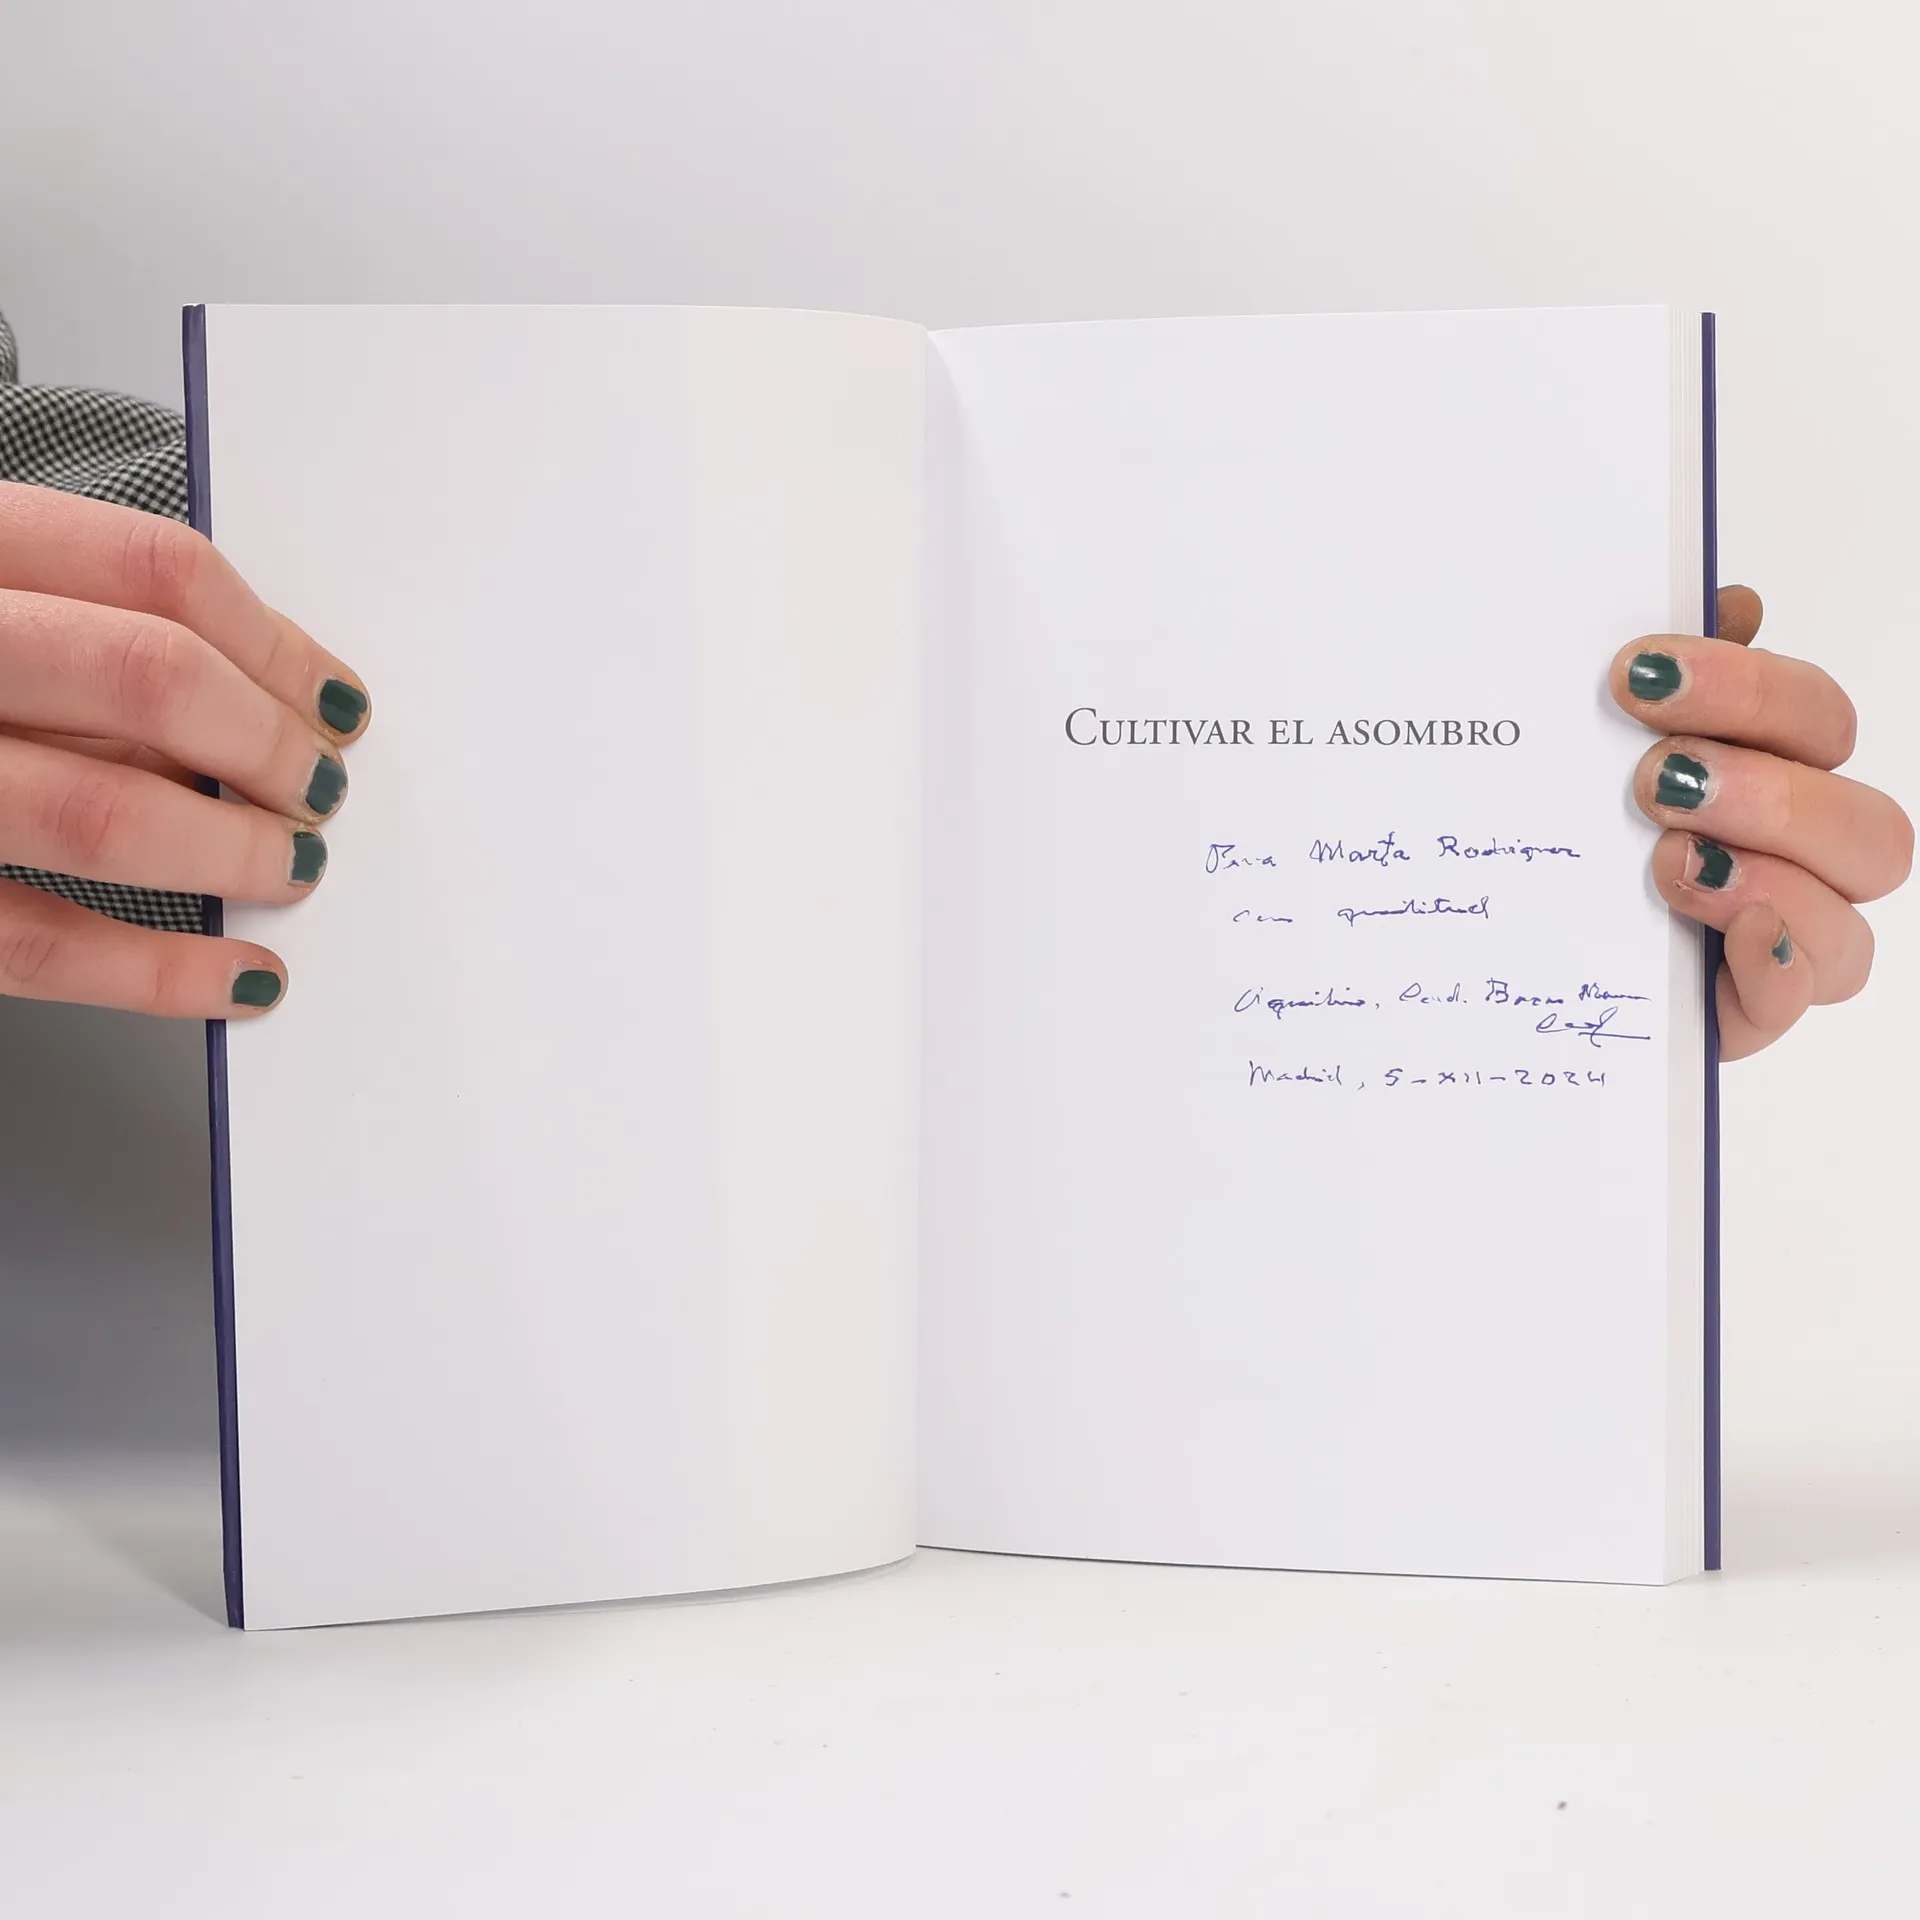 CULTIVAR EL ASOMBRO
Para Marta Rodriguez
con gratitud
Aquilino, Card. Bocos Merino
Madrid, 5-XII-2024